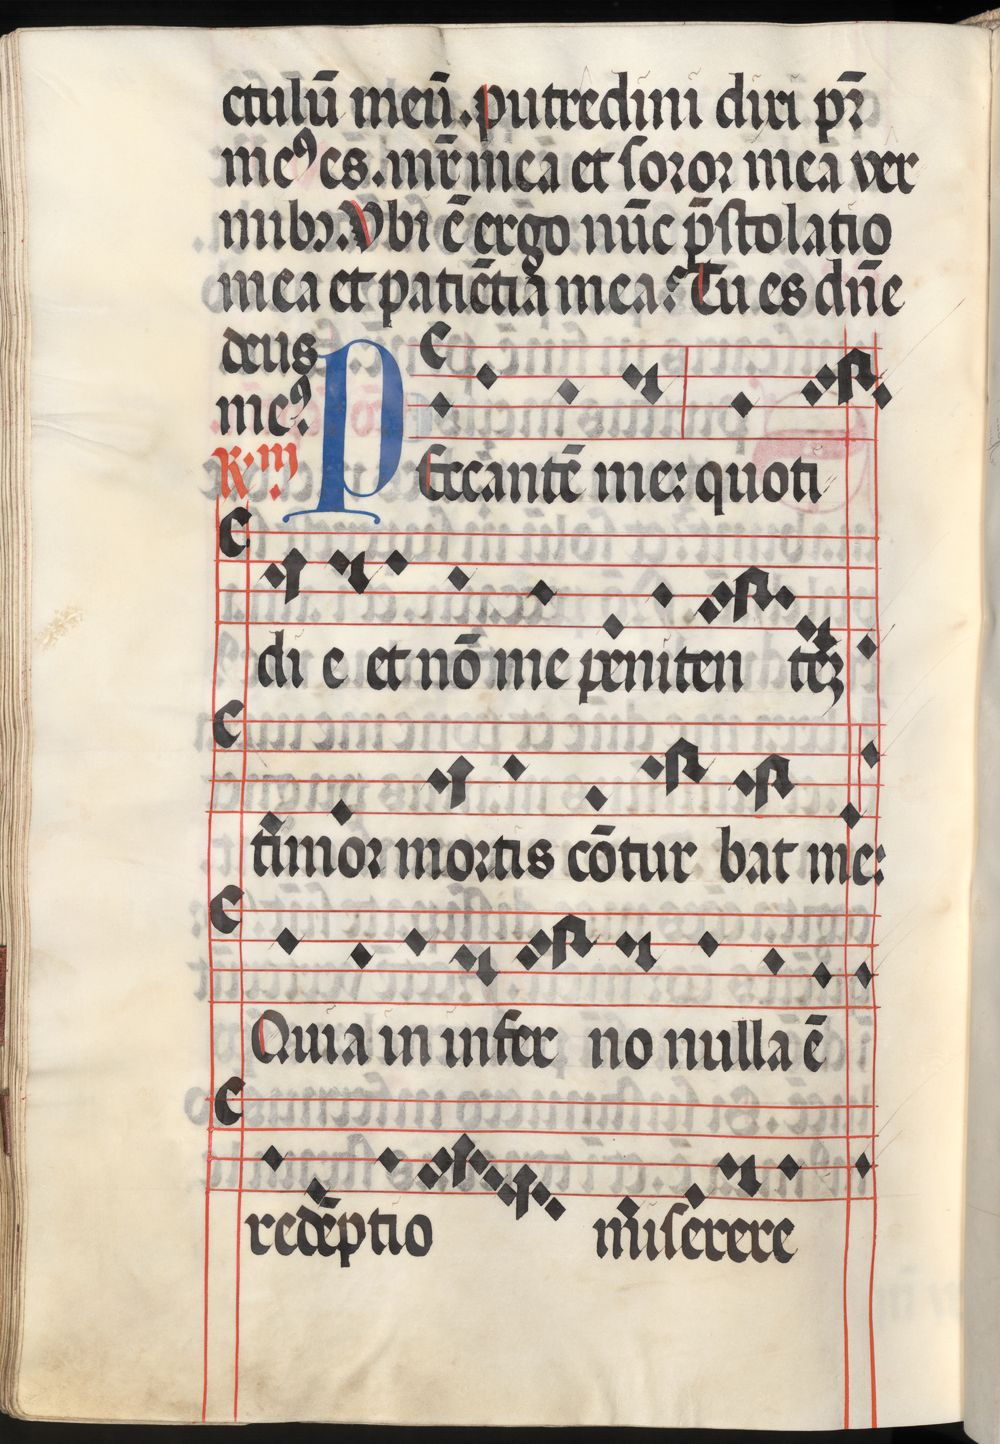 ctulū meū. putredini dixi pr̄
meꝰ es. mr̄ mea et soror mea ver
mibꝫ. Vbi ē ergo nūc p̄stolatio
mea et patiētia mea? Tu es dn̄e
deus
meꝰ.
R. iij
PEccantē me: quoti
di e et nō me peniten tēꝫ
timor mortis cōtur bat me:
Quia in infer no nulla ē
redēptio miserere